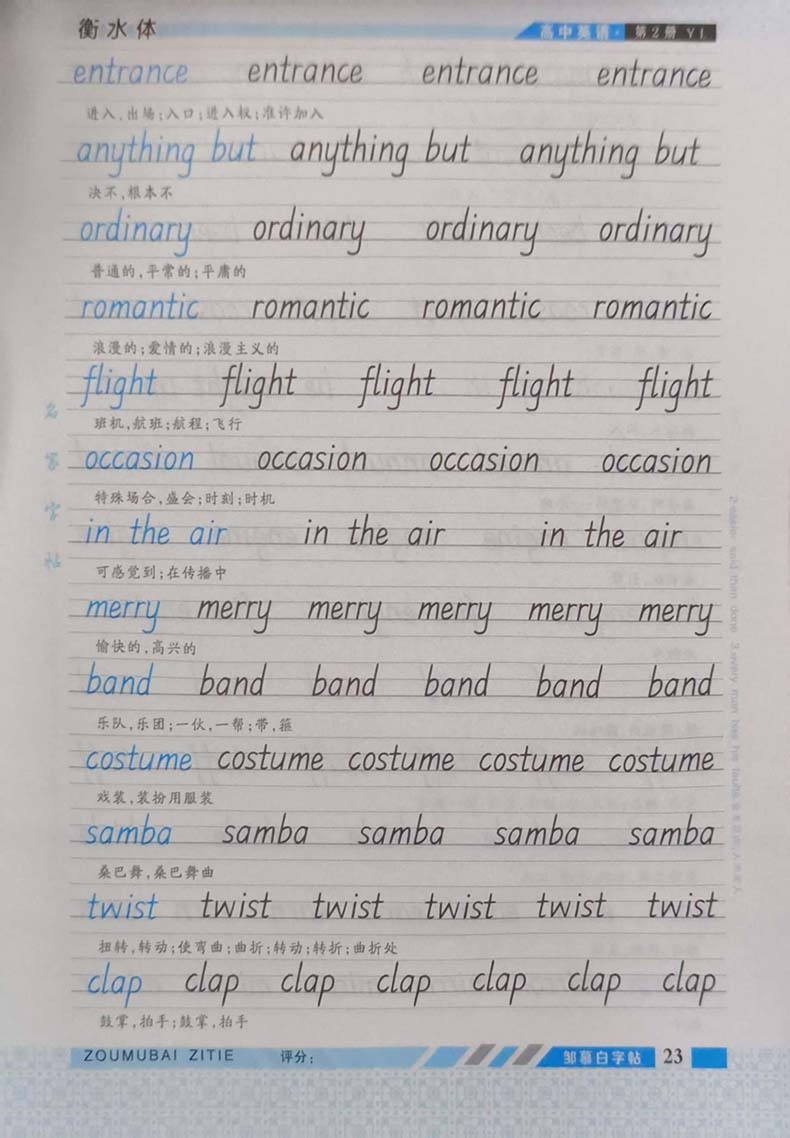 衡水体 高中英语· 第2册 YL
entrance entrance entrance entrance
进入,出场;入口;进入权;准许加入
anything but anything but anything but
决不,根本不
ordinary ordinary ordinary ordinary
普通的,平常的;平庸的
romantic romantic romantic romantic
浪漫的;爱情的;浪漫主义的
flight flight flight flight flight
班机,航班;航程;飞行
occasion occasion occasion occasion
特殊场合,盛会;时刻;时机
in the air in the air in the air
可感觉到;在传播中
merry merry merry merry merry merry
愉快的,高兴的
band band band band band band
乐队,乐团;一伙,一帮;带,箍
costume costume costume costume costume
戏装,装扮用服装
samba samba samba samba samba
桑巴舞,桑巴舞曲
twist twist twist twist twist twist
扭转,转动;使弯曲;曲折;转动;转折;曲折处
clap clap clap clap clap clap clap
鼓掌,拍手;鼓掌,拍手
名家字帖
ZOUMUBAI ZITIE 评分: 邹慕白字帖 23